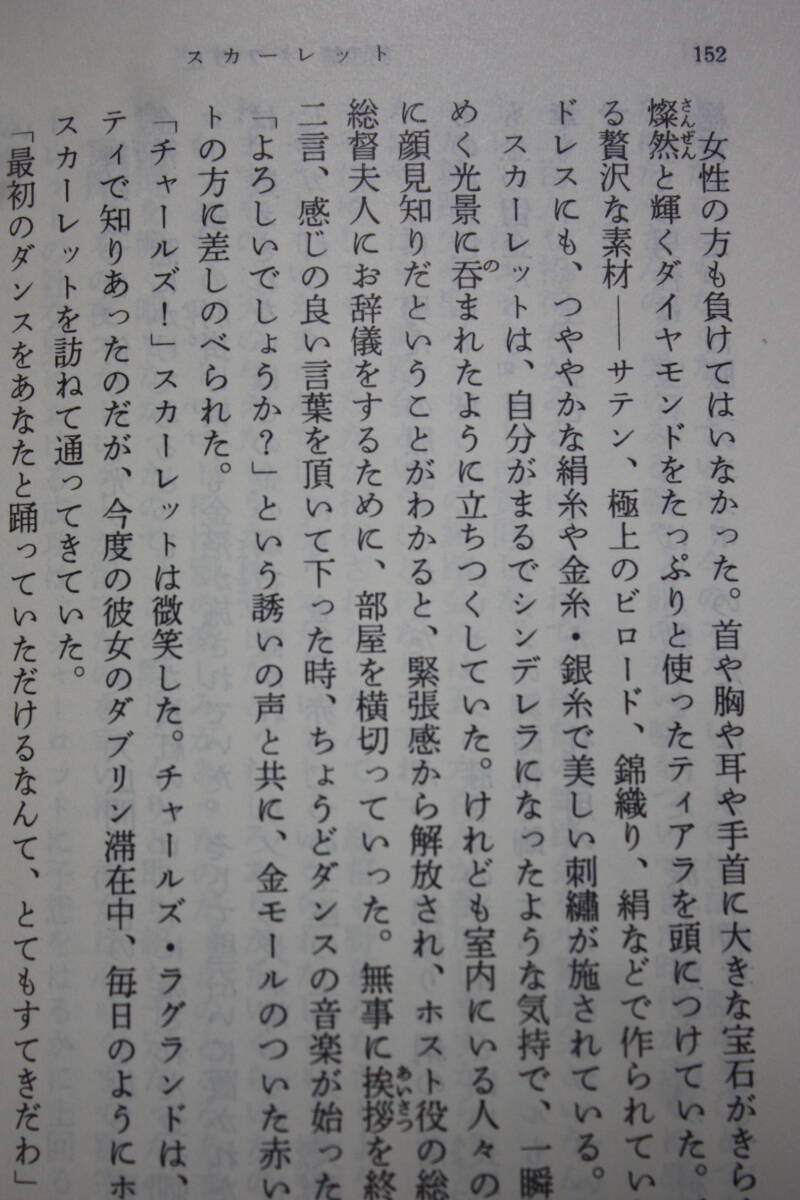 スカーレット
152
女性の方も負けてはいなかった。首や胸や耳や手首に大きな宝石がきら
燦然と輝くダイヤモンドをたっぷりと使ったティアラを頭につけていた。
さんぜん
る贅沢な素材――サテン、極上のビロード、錦織り、絹などで作られてい
ドレスにも、つややかな絹糸や金糸・銀糸で美しい刺繡が施されている。
スカーレットは、自分がまるでシンデレラになったような気持で、一瞬
めく光景に吞まれたように立ちつくしていた。けれども室内にいる人々の
の
に顔見知りだということがわかると、緊張感から解放され、ホスト役の総
総督夫人にお辞儀をするために、部屋を横切っていった。無事に挨拶を終
あいさつ
二言、感じの良い言葉を頂いて下った時、ちょうどダンスの音楽が始った
「よろしいでしょうか?」という誘いの声と共に、金モールのついた赤い
トの方に差しのべられた。
「チャールズ!」スカーレットは微笑した。チャールズ・ラグランドは、
ティで知りあったのだが、今度の彼女のダブリン滞在中、毎日のようにホ
スカーレットを訪ねて通ってきていた。
「最初のダンスをあなたと踊っていただけるなんて、とてもすてきだわ」